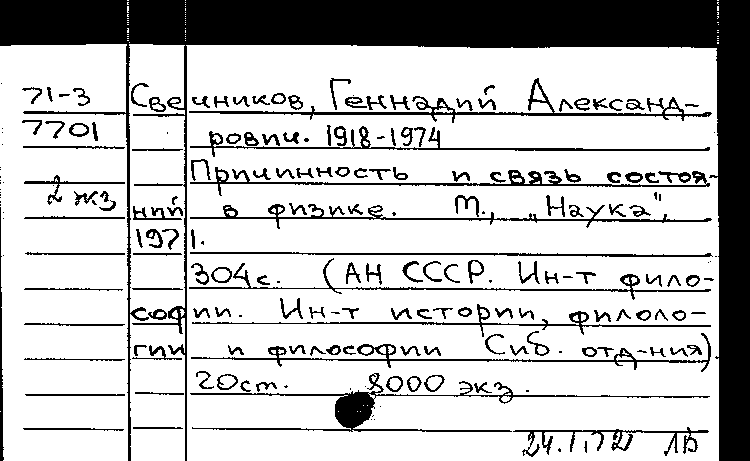 71-3 Свечников, Геннадий Александ-
7701 рович. 1918-1974
Причинность и связь состоя-
2 экз ний в физике. М., „Наука",
1971.
304с. (АН СССР. Ин-т фило-
софии. Ин-т истории, филоло-
гии и философии Сиб. отд-ния)
20см. 8000 экз.
24.I.72 ЛВ